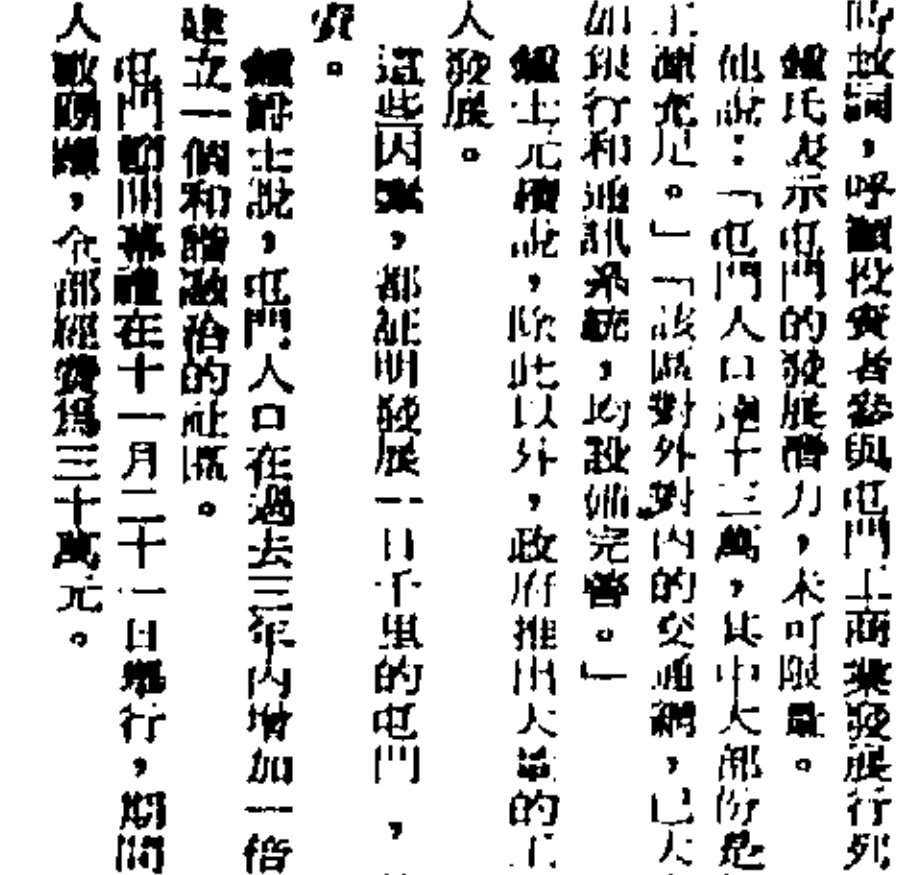 時致詞,呼籲投資者參與屯門工商業發展行列
鍾氏表示屯門的發展潛力,未可限量。
他說:「屯門人口達十三萬,其中大部份是
工源充足。」「該區對外對內的交通網,已大
如銀行和通訊系統,均設備完善。」
鍾士元續說,除此以外,政府推出大量的工
人發展。
這些因素,都証明發展一日千里的屯門,
資。
鍾爵士說,屯門人口在過去三年內增加一倍
建立一個和諧融洽的社區。
屯門節開幕禮在十一月二十一日舉行,期間
人數踴躍,全部經費為三十萬元。